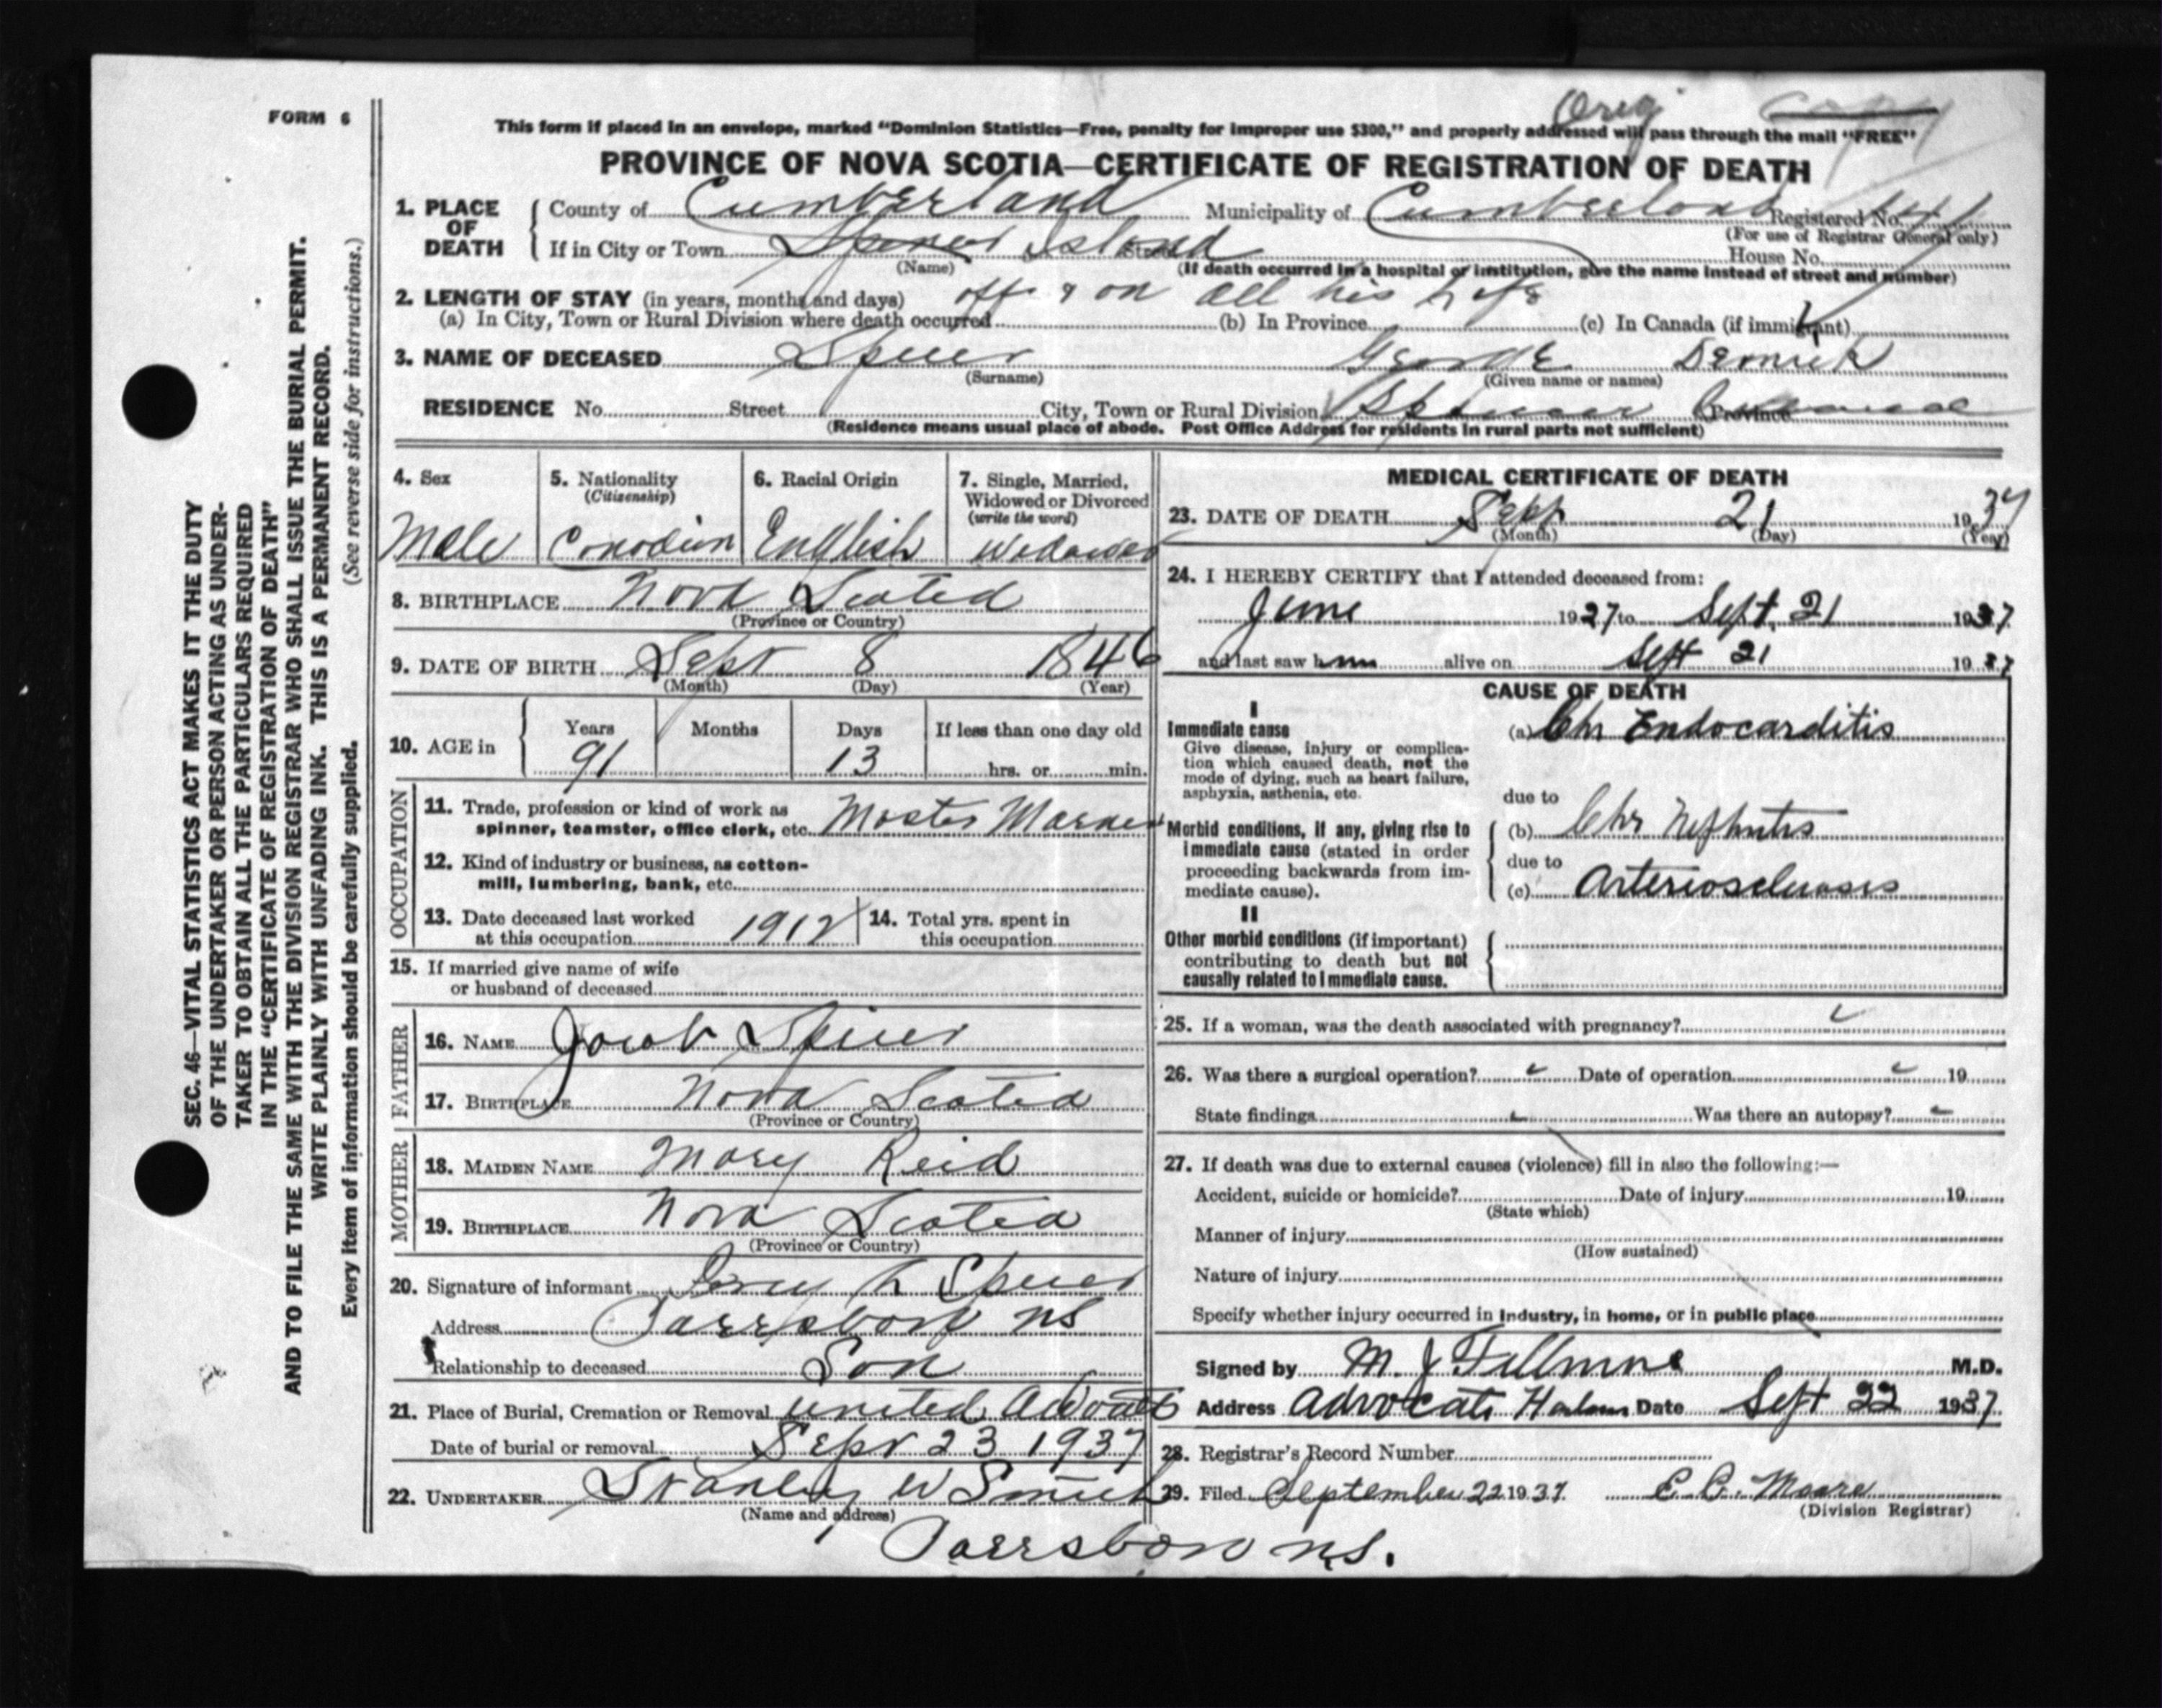 FORM 6
Orig
copy
This form if placed in an envelope, marked "Dominion Statistics—Free, penalty for improper use $300," and properly addressed will pass through the mail "FREE"
PROVINCE OF NOVA SCOTIA—CERTIFICATE OF REGISTRATION OF DEATH
1. PLACE OF DEATH County of Cumberland Municipality of Cumberland Registered No.
(For use of Registrar General only)
If in City or Town Spencer Island Street House No.
(Name) (If death occurred in a hospital or institution, give the name instead of street and number)
2. LENGTH OF STAY (in years, months and days) off & on all his life
(a) In City, Town or Rural Division where death occurred (b) In Province (c) In Canada (if immigrant)
3. NAME OF DECEASED Spicer George
(Surname) (Given name or names)
RESIDENCE No. Street City, Town or Rural Division Province
(Residence means usual place of abode. Post Office Address for residents in rural parts not sufficient)
4. Sex 5. Nationality 6. Racial Origin 7. Single, Married,
(Citizenship) Widowed or Divorced
(write the word)
Male Canadian English Widowed
8. BIRTHPLACE Nova Scotia
(Province or Country)
9. DATE OF BIRTH Sept 8 1846
(Month) (Day) (Year)
10. AGE in Years Months Days If less than one day old
91 13 hrs. or min.
OCCUPATION
11. Trade, profession or kind of work as
spinner, teamster, office clerk, etc. Master Mariner
12. Kind of industry or business, as cotton-
mill, lumbering, bank, etc.
13. Date deceased last worked
at this occupation 1912
14. Total yrs. spent in
this occupation
15. If married give name of wife
or husband of deceased
FATHER
16. NAME Jacob Spicer
17. BIRTHPLACE Nova Scotia
(Province or Country)
MOTHER
18. MAIDEN NAME Mary Reid
19. BIRTHPLACE Nova Scotia
(Province or Country)
20. Signature of informant Spicer
Address Parrsboro NS
Relationship to deceased Son
21. Place of Burial, Cremation or Removal United Advocate
Date of burial or removal Sept 23 1937
22. UNDERTAKER Stanley W Smith
(Name and address)
Parrsboro N.S.
MEDICAL CERTIFICATE OF DEATH
23. DATE OF DEATH Sept 21 1937
(Month) (Day) (Year)
24. I HEREBY CERTIFY that I attended deceased from:
June 1927 to Sept. 21 1937
and last saw him alive on Sept 21 1937
CAUSE OF DEATH
I
Immediate cause (a) Chr Endocarditis
Give disease, injury or complica-
tion which caused death, not the
mode of dying, such as heart failure,
asphyxia, asthenia, etc.
due to
Morbid conditions, if any, giving rise to
immediate cause (stated in order
proceeding backwards from im-
mediate cause).
(b) Chr Nephritis
due to
(c) Arteriosclerosis
II
Other morbid conditions (if important)
contributing to death but not
causally related to immediate cause.
25. If a woman, was the death associated with pregnancy?
26. Was there a surgical operation? Date of operation 19
State findings Was there an autopsy?
27. If death was due to external causes (violence) fill in also the following:—
Accident, suicide or homicide? Date of injury 19
(State which)
Manner of injury
(How sustained)
Nature of injury
Specify whether injury occurred in industry, in home, or in public place
Signed by M. J. Fillmore M.D.
Address Advocate Harbour Date Sept 22 1937.
28. Registrar's Record Number
29. Filed September 22 1937. E. C. Moore
(Division Registrar)
SEC. 46—VITAL STATISTICS ACT MAKES IT THE DUTY
OF THE UNDERTAKER OR PERSON ACTING AS UNDER-
TAKER TO OBTAIN ALL THE PARTICULARS REQUIRED
IN THE "CERTIFICATE OF REGISTRATION OF DEATH"
AND TO FILE THE SAME WITH THE DIVISION REGISTRAR WHO SHALL ISSUE THE BURIAL PERMIT.
WRITE PLAINLY WITH UNFADING INK. THIS IS A PERMANENT RECORD.
Every item of information should be carefully supplied. (See reverse side for instructions.)